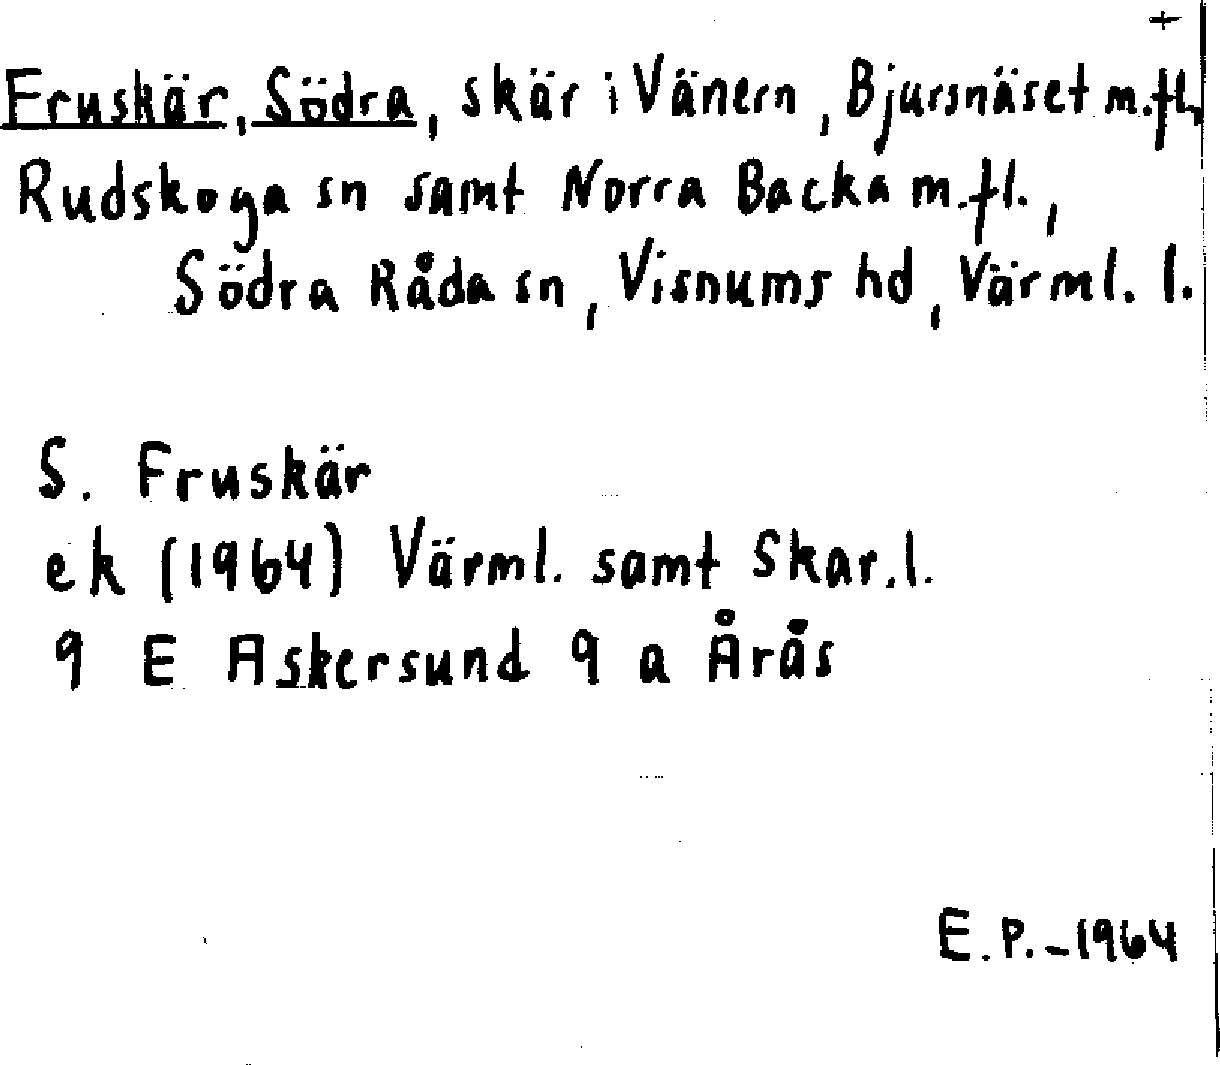 +
Fruskär, Södra, skär i Vänern, Bjursnäset m.fl.,
Rudskoga sn samt Norra Backa m.fl.,
Södra Råda sn, Visnums hd, Värml. l.
S. Fruskär
ek (1964) Värml. samt Skar. l.
9 E Askersund 9 a Årås
E.P. - 1964